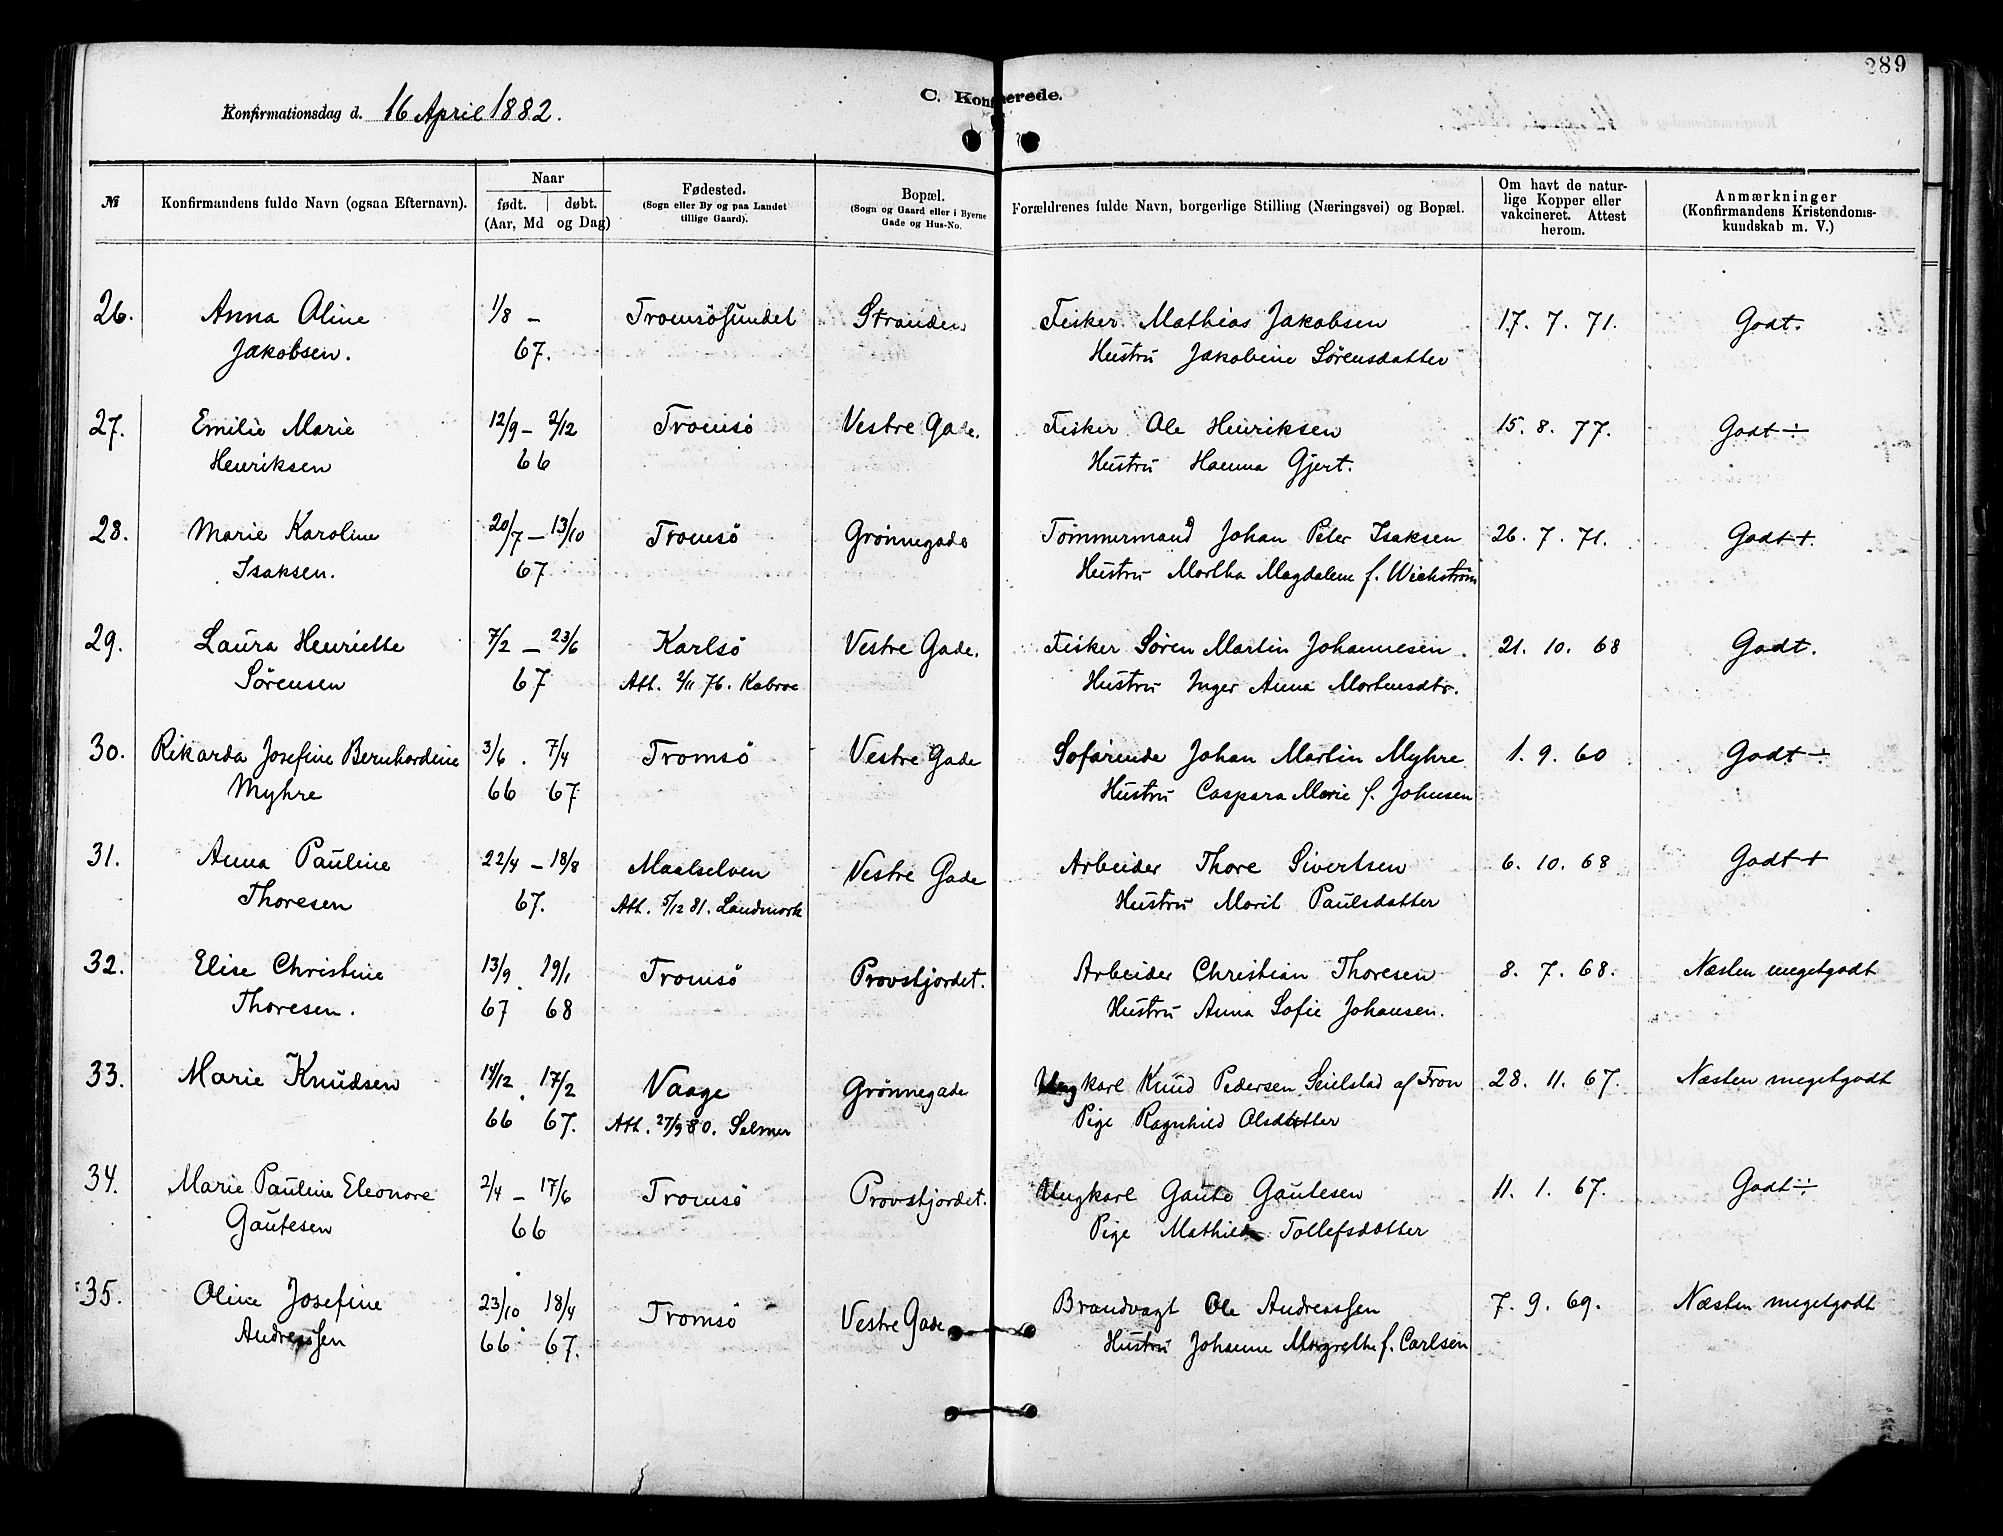 289
C. Konfirmerede.
Konfirmationsdag d. 16 April 1882.
№ Konfirmandens fulde Navn (ogsaa Efternavn). Naar født. døbt. (Aar, Md og Dag) Fødested. (Sogn eller By og paa Landet tillige Gaard). Bopæl. (Sogn og Gaard eller i Byerne Gade og Hus-No. Forældrenes fulde Navn, borgerlige Stilling (Næringsvei) og Bopæl. Om havt de naturlige Kopper eller vakcineret. Attest herom. Anmærkninger (Konfirmandens Kristendomskundskab m. V.)
26. Anna Oline 1/8 - Tromsösundet Stranden Fisker Mathias Jakobsen 17. 7. 71. Godt.
Jakobsen. 67. Hustru Jakobine Sörensdatter
27. Emilie Marie 12/9 - 2/12 Tromsö Vestre Gade. Fisker Ole Henriksen 15. 8. 77. Godt ÷
Henriksen 66 Hustru Hanna Gjert.
28. Marie Karoline 20/7 - 13/10 Tromsö Grönnegade Tömmermand Johan Peter Isaksen 26. 7. 71. Godt +.
Isaksen. 67 Hustru Martha Magdalene f. Wichström
29. Laura Henriette 7/2 - 23/6 Karlsö Vestre Gade. Fisker Sören Martin Johannesen. 21. 10. 68 Godt.
Sörensen 67 Att. 2/11 76. Kobroe Hustru Inger Anna Mortensdtr.
30. Rikarda Josefine Bernhardine 3/6 . 7/4 Tromsö Vestre Gade Söfarende Johan Martin Myhre 1. 9. 60 Godt ÷
Myhre 66 67 Hustru Caspara Marie f. Johnsen
31. Anna Pauline 22/4 - 18/8 Maalselven Vestre Gade Arbeider Thore Sivertsen 6. 10. 68 Godt +
Thoresen 67. Att. 5/12 81. Landmark Hustru Marit Paulsdatter
32. Elise Christine 13/9 . 19/1 Tromsö Provstjordet. Arbeider Christian Thoresen 8. 7. 68. Næsten megetgodt
Thoresen. 67 68 Hustru Anna Sofie Johansen.
33. Marie Knudsen 14/12 . 17/2 Vaage Grönnegade Ungkarl Knud Pedersen Seielstad af Fron 28. 11. 67. Næsten megetgodt
66 67. Att. 27/9 80. Selmer Pige Ragnhild Olsdatter
34. Marie Pauline Eleonore 2/4 - 17/6 Tromsö Provstjordet. Ungkarl Gaute Gautesen 11. 1. 67. Godt ÷
Gautesen 66 Pige Mathilde Tollefsdatter
35. Oline Josefine 23/10 . 18/4 Tromsö Vestre Gade Brandvagt Ole Andreassen 7. 9. 69. Næsten megetgodt
Andreassen 66 67. Hustru Johanne Margrethe f. Carlsen